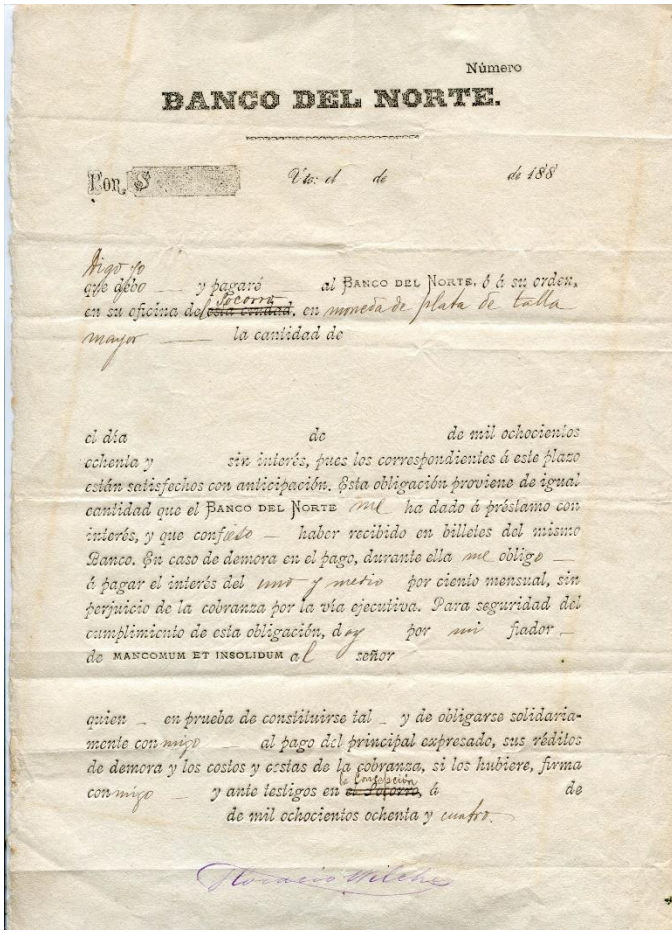 Número
BANCO DEL NORTE.
Por $
Vto: el de de 188
Digo yo
que debo y pagaré al BANCO DEL NORTE, ó á su orden,
Socorro
en su oficina de esta ciudad, en moneda de plata de talla
mayor la cantidad de
el día de de mil ochocientos
ochenta y sin interés, pues los correspondientes á este plazo
están satisfechos con anticipación. Esta obligación proviene de igual
cantidad que el BANCO DEL NORTE me ha dado á préstamo con
interés, y que confieso haber recibido en billetes del mismo
Banco. En caso de demora en el pago, durante ella me obligo
á pagar el interés del uno y medio por ciento mensual, sin
perjuicio de la cobranza por la vía ejecutiva. Para seguridad del
cumplimiento de esta obligación, doy por mi fiador
de MANCOMUM ET INSOLIDUM al señor
quien en prueba de constituirse tal y de obligarse solidaria-
mente conmigo al pago del principal expresado, sus réditos
de demora y los costos y costas de la cobranza, si los hubiere, firma
la Concepción
conmigo y ante testigos en el Socorro, á de
de mil ochocientos ochenta y cuatro.
Horacio Wilches